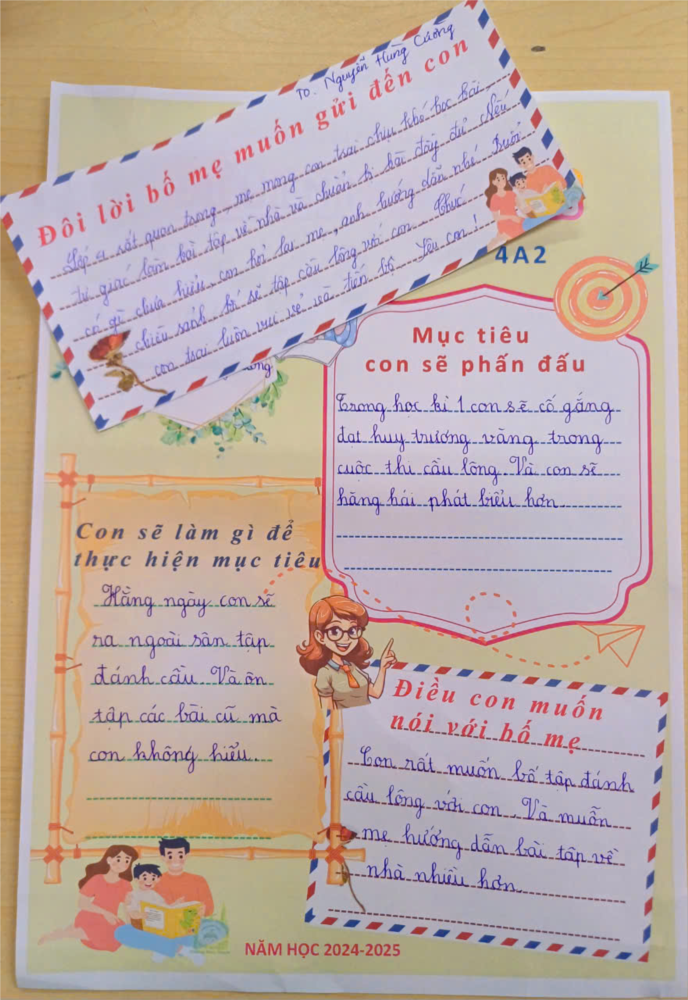 TO. Nguyễn Hùng Cường
Đôi lời bố mẹ muốn gửi đến con
Lớp 4 rất quan trọng, mẹ mong con trai chịu khó học bài,
tự giác làm bài tập về nhà và chuẩn bị bài đầy đủ. Nếu
có gì chưa hiểu, con hỏi lại mẹ, anh hướng dẫn nhé. Buổi
chiều rảnh bố sẽ tập cầu lông với con. Chúc
con trai luôn vui vẻ và tiến bộ. Yêu con!
4A2
Mục tiêu
con sẽ phấn đấu
Trong học kì 1 con sẽ cố gắng
đạt huy trương vàng trong
cuộc thi cầu lông. Và con sẽ
hăng hái phát biểu hơn.
Con sẽ làm gì để
thực hiện mục tiêu
Hằng ngày con sẽ
ra ngoài sân tập
đánh cầu. Và ôn
tập các bài cũ mà
con không hiểu.
Điều con muốn
nói với bố mẹ
Con rất muốn bố tập đánh
cầu lông với con. Và muỗn
mẹ hướng dẫn bài tập về
nhà nhiều hơn.
NĂM HỌC 2024-2025